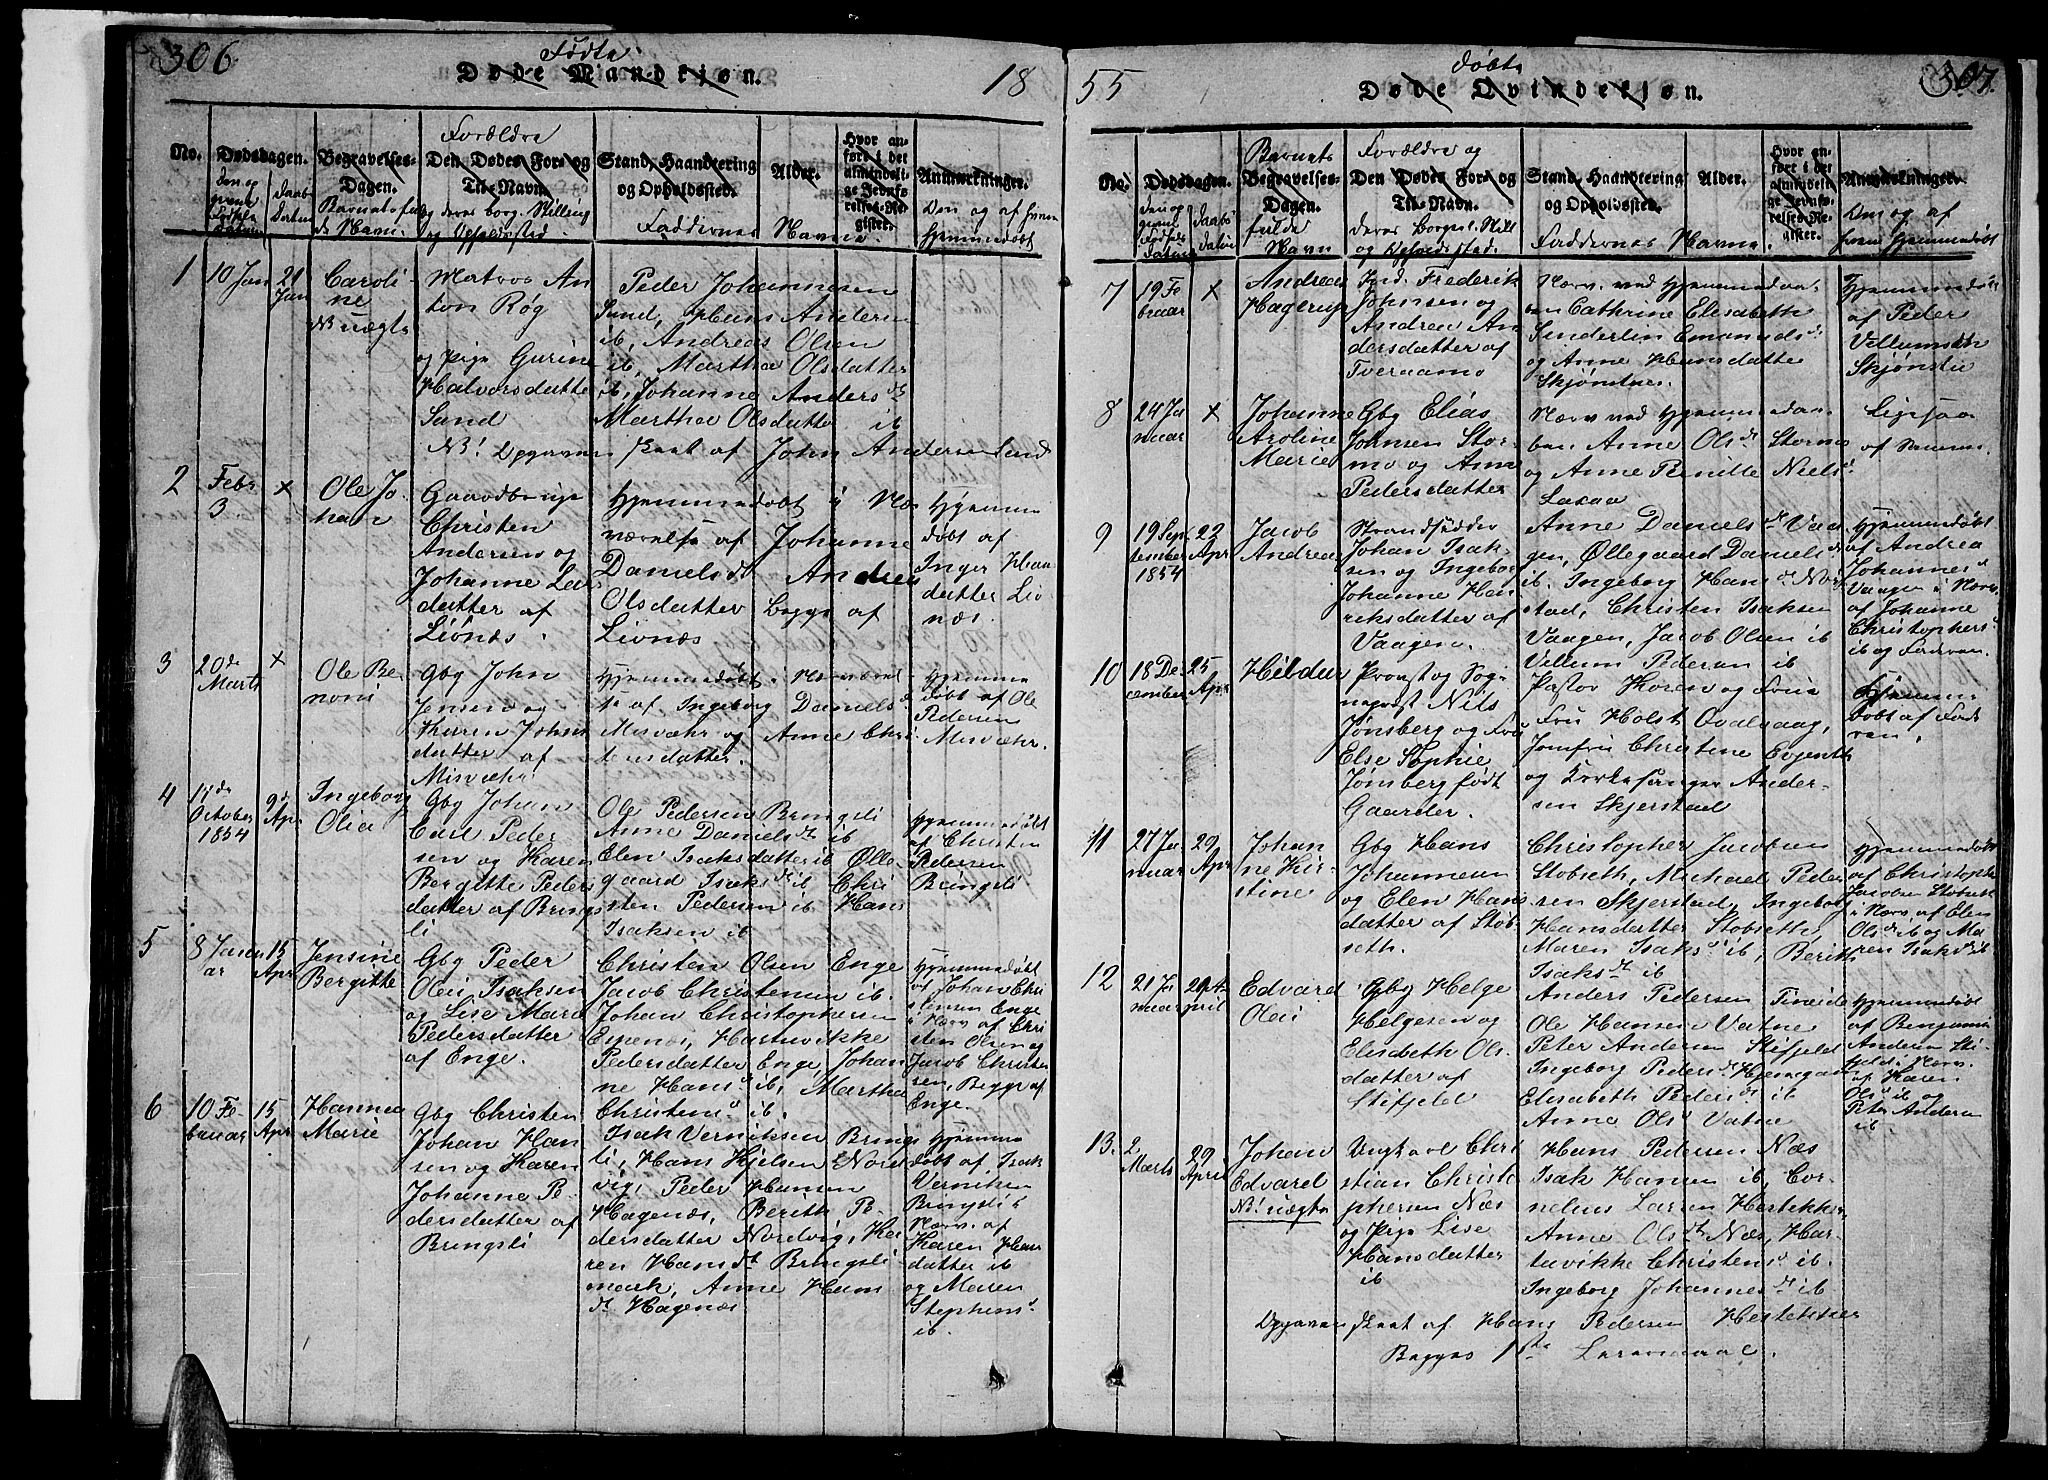 306
Fødte
Døde Mandkjøn.
18
No.
Dødsdagen.
Begravelses-
Dagen.
Barnets fuld
Navn.
Forældre
Den Dødes For- og
Til-Navn.
deres borg. Stilling
og Opholdssted
Stand, Haandtering
og Opholdssted.
Alder.
Faddernes Navne
Hvor an-
ført i det
almindeli-
ge Jevnfø-
relses-Re-
gister.
Anmærkninger.
Om og af hvem
hjemmedøbt
1
10 Jan
21
Jan
Caroli-
ne
NB uægte
Matros An
ton Røg
og Pige Gurine
Halvorsdatte
Sand
Peder Johannesen
Sand, Hans Andersen
ib, Andreas Olsen
ib, Martha Olsdatter
ib, Johanne Andersd.
Martha Olsdatter ib
NB! Opgaven skeet af John Andersen Sand
2
Febr
3
×
Ole Jo-
han
Gaardbruger
Christen
Andersen og
Johanne Lar
datter af
Liønæs.
Hjemmedøbt i Nær
værelse af Johanne
Danielsd. Andrea
Olsdatter begge af
Liønæs
Hjemme
døbt af
Inger Han
datter Liø-
næs.
3
20de
Marts
×
Ole Be-
noni
Gbg John
Jensen og
Karen Johns
datter af
Misvæhr
Hjemmedøbt i Nærværel
se af Ingeborg Daniels d
Misvæhr og Anne Chri-
stensdatter.
Hjemme
døbt af Ole
Pedersen
Misvæhr.
4
14de
October
1854
9de
Apr
Ingeborg
Olia
Gbg Johan
Carl Peder
sen og Karen
Bergitte Peders
datter af Brings
li
Ole Pedersen Bringsli
Anne Danielsdt ib
Elen Isaksdatter ib Ølle-
gaard Isaksdt ib Chri
sten Pedersen ib Hans
Isaksen ib
Hjemmedøbt
af Christen
Pedersen
Bringsli
5
8 Janu
ar
15
Apr
Jensine
Bergitte
Gbg Peder
Olai Isaksen
og Lise Marie
Pedersdatter
af Enge.
Christen Olsen Enge
Jacob Christensen ib.
Johan Christophersen
Espenæs, Hartvikke
Pedersdatter Enge, Johan
ne Hansd ib, Martha
Christensd ib.
Hjemmedøbt
af Johan Chri
stensen Enge
i Nærv. af Chri
sten Olsen og
Jacob Christen
sen, Begge af
Enge.
6
10 Fe-
bruar
15
Apr
Hanna
Marie
Gbg Christen
Johan Han
sen og Karen
Johanna Pe-
dersdatter af
Bringsli
Isak Verniksen Brings
li, Hans Kjelsen Nord
vig, Peder Hansen
Hagenæs, Berith Pe-
dersdatter Nordvig, Ka-
ren Hansdt Bringsli
mark, Anne Hans
dt Hagenæs
Hjemme
døbt af Isak
Verniksen
Bringsli i
Nærv. af
Karen Han
datter ib
og Maren
Stephensd
ib.
55
døbte
Døde Qvindekjøn.
307.
No.
Dødsdagen.
Barnets
Begravelses-
Dagen.
fulde
Navn
Forældre og
Den Dødes For- og
Til-Navn.
deres Borgerl. Still
og Opholdssted.
Stand, Haandtering
og Opholdssted.
Alder.
Faddernes Navne.
Hvor an-
ført i det
almindeli-
ge Jevnfø-
relses-Re-
gister.
Anmærkninger.
Om og af
hvem hjemmedøbt
7
19 Fe
bruar
×
Andreas
Hagerup
Ind. Frederik
Johnsen og
Andrea An
dersdatter af
Tveraamo
Nærv. ved Hjemmedaa-
ben Cathrine Elisabeth
Sunderlin Emanuelsd.
og Anne Hansdatter
Skjønstue.
Hjemmedøbt
af Peder
Villumsen
Skjønstue
8
24 Ja
nuar
×
Johanne
Aroline
Marie
Gbg Elias
Johnsen Stor-
mo og Anne
Pedersdatter
Nærv ved Hjemmedaa-
ben Anne Olsdt Stormo
og Anne Pernille Nielsd.
Laxaa
Ligesaa
af Samme
9
19 Sep
tember
1854
22
Apr
Jacob
Andrea
Strandsidder
Johan Isak-
sen og Ingeborg
Johanne Hen
riksdatter af
Vaagen.
Anne Danielsdt Vaa-
gen, Øllegaard Danielsd
ib. Ingeborg Hansdt Nord
stad, Christen Isaksen
Vaagen, Jacob Olsen ib
Villum Pedersen ib
Hjemmedøbt
af Andrea
Johannesd
Vaagen i Nærv.
af Johanne
Christophersd
ib og Faderen.
10
18 De-
cember
25
Apr
Hildur
Provst og Sog-
nepræst Nils
Jønsberg og Fru
Else Sophie
Jønsberg født
Gaarder.
Pastor Koren og Frue
Fru Holst Qvalvaag,
Jomfru Christine Evjenth
og Kirkesanger Ander-
sen Skjerstad
Hjemme
døbt af Fade
ren.
11
27 Ja
nuar
29
Apr
Johan
ne Kir-
stine
Gbg Hans
Johannesen
og Elen Hans
datter af Støb
seth.
Christopher Jacobsen
Støbseth, Michael Peder
sen Skjerstad, Ingeborg
Hansdatter Støbseth,
Maren Isaksd ib, Berith
Isaksdt ib
Hjemmedøbt
af Christopher
Jacobsen Støbseth
i Nærv. af Elen
Olsdt ib og Ma
ren Isaksdt ib
12
21 Ja
nuar
29 A-
pril
Edvard
Olai
Gbg Helge
Helgesen og
Elisabeth Ols
datter af
Stifjeld
Anders Pedersen Tverlie
Ole Hansen Vatne
Peter Andersen Stifjeld
Ingeborg Pedersdt
Elisabeth Pedersdt ib
Anne Olsd Vatne
Hjemmedøbt
af Benjamin
Andersen Sti
fjeld i Nærv.
af Karen
Olsd ib og
Peter Andersen
ib.
13.
2
Marts
29
April
Johan
Edvard
NB! uægte
Ungkarl Chri
stian Christo
phersen Næs
og Pige Lise
Hansdatter
ib
Hans Pedersen Næs
Isak Hansen ib, Cor-
nelius Larsen Hestekkr.
Anne Olsdt Næs, Har-
tavikke Christensd ib.
Ingeborg Johannesdt ib
Opgaven skeet af Hans Pedersen Hestekkær
Begges 1ste Leiermaal.